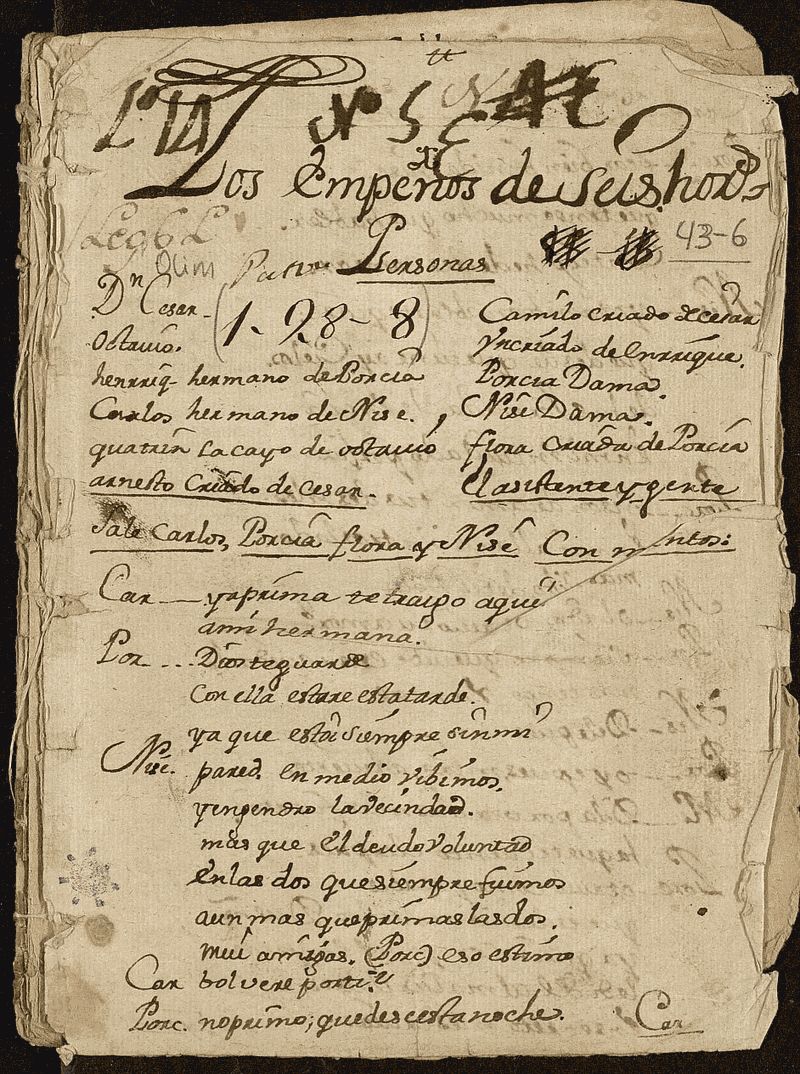 Lº 14 Nº 5
Los Empeños de Seis horas
Leg 6 L
43-6
Olim
Personas
Dn Cesar-
(1-98-8)
Octavio.
henrriq- hermano de Porcia
Carlos hermano de Nise.
quatrin Lacayo de octavio
arnesto Criado de Cesar.
Camilo Criado de Cesar
Yn criado de Enrrique.
Porcia Dama
Nise Dama.
flora Criada de Porcia
El asistente y gente
Sale Carlos, Porcia flora y Nise Con mantos:
Car __ ya prima te traigo aqui
ami hermana.
Por __ Dios te guarde
Con ella estare esta tarde.
ya que esta siempre sin mi
Nise. pared. En medio vibimos,
y enjendro la vecindad.
mas que El deudo Voluntad
En las dos que siempre fuimos
aun mas que primas las dos.
mui amigas. (Porc) eso estimo
Car bolvere por ti
Porc. no primo, quedese esta noche.
Car